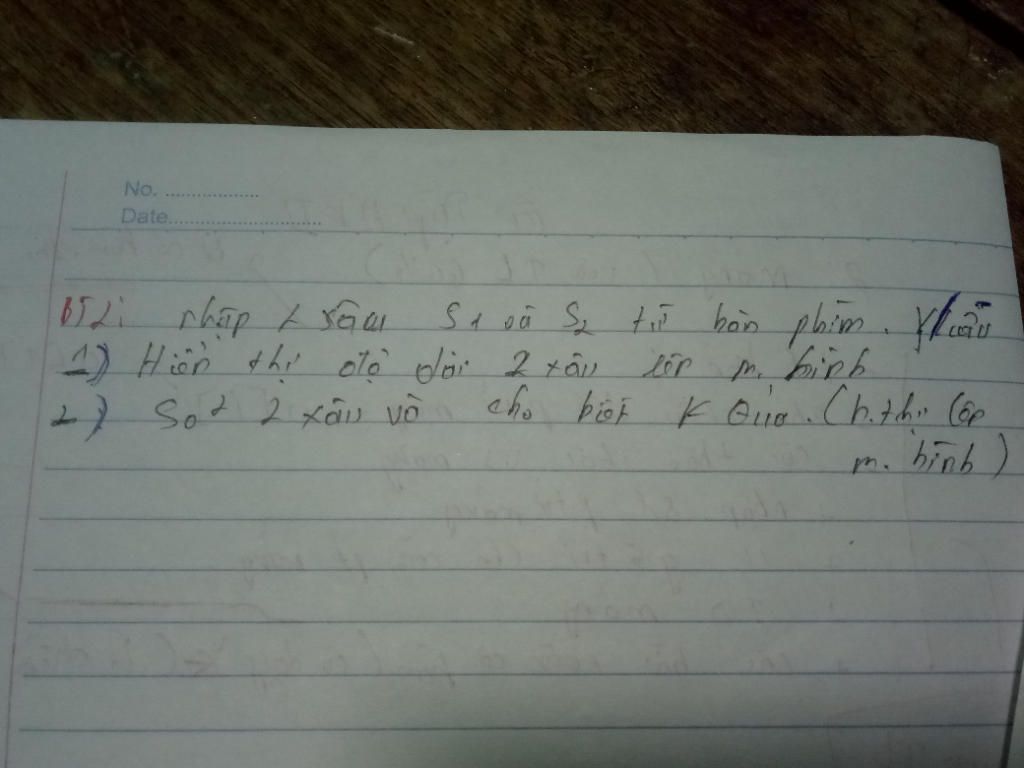 No. ..................
Date..........................
BT2: nhập 2 xâu S1 và S2 từ bàn phím. Y/cầu
1) Hiển thị độ dài 2 xâu lên m. hình
2) So² 2 xâu và cho biết K Quả. (h.thị lên
m. hình)